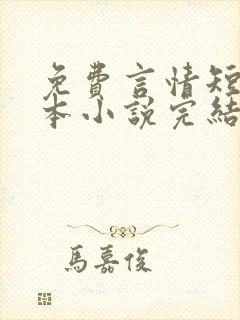 免費言情短
本小說完結
馬嘉俊